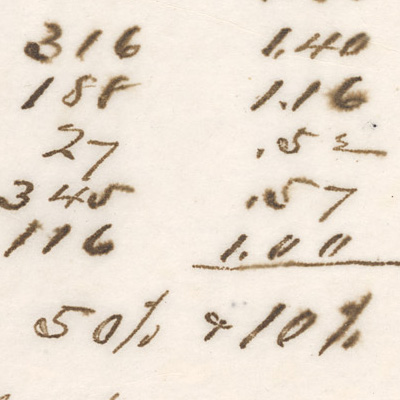 316 1.40
188 1.16
27 .52
345 .57
116 1.00
50% & 10%